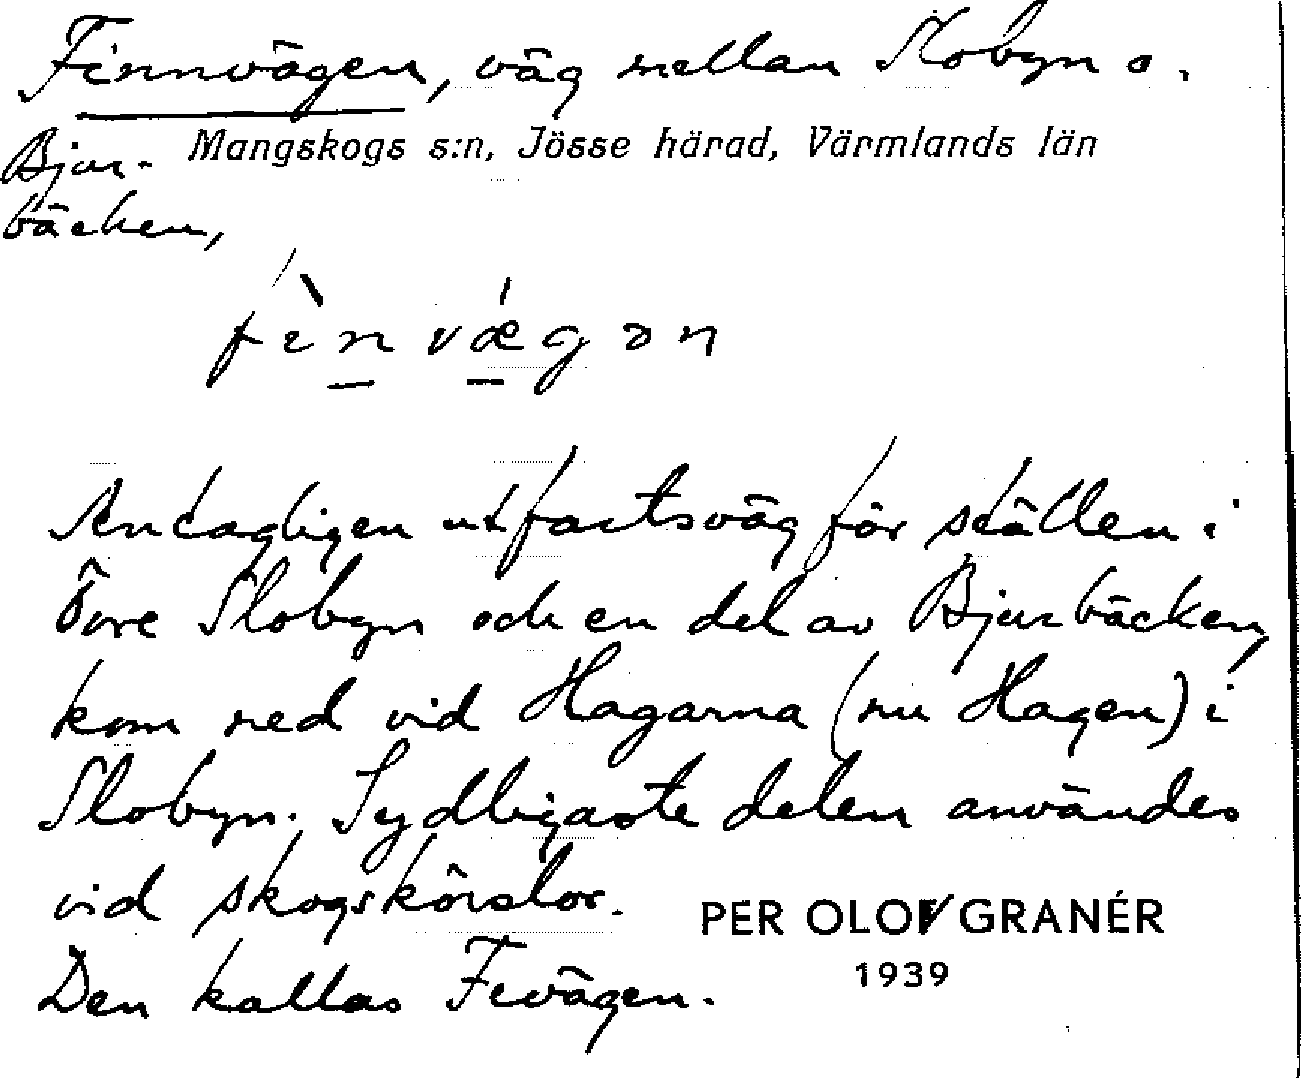 Finnvägen, väg mellan Slobyn o.
Mangskogs s:n, Jösse härad, Värmlands län
Bjur-
bäcken,
fìnvǽgən
Antagligen utfartsväg för ställen i
Övre Slobyn och en del av Bjurbäcken,
kom ned vid Hagarna (nu Hagen) i
Slobyn. Sydligaste delen användes
vid skogskörslor.
PER OLOV GRANÉR
1939
Den kallas Fevägen.